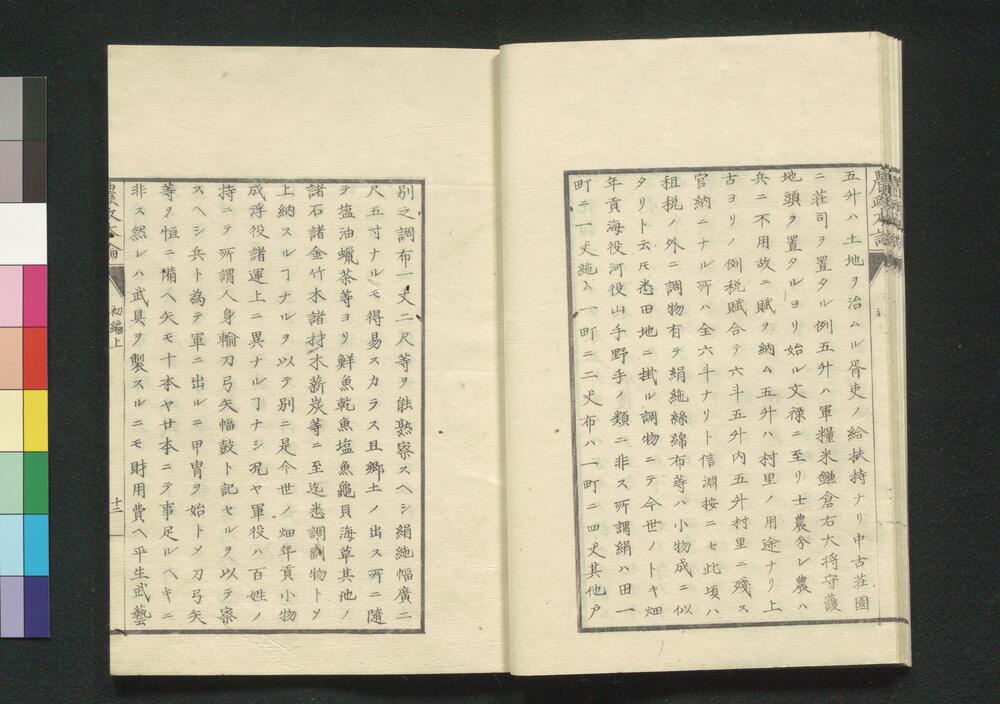 五升ハ土地ヲ治ムル胥吏ノ給扶持ナリ中古荘園
ニ荘司ヲ置タル例五升ハ軍糧米鎌倉右大将守護
地頭ヲ置タルヨリ始ル文禄ニ至リ士農分レ農ハ
兵ニ不用故ニ賦ヲ納ム五升ハ村里ノ用途ナリ上
古ヨリノ例税賦合テ六斗五升内五升村里ニ残ス
官納ニナル所ハ全六斗ナリト信淵按ニセ此頃ハ
租税ノ外ニ調物有テ絹絁絲綿布等ハ小物成ニ似
タリト云𪜈悉田地ニ掛ル調物ニテ今世ノトキ畑
年貢海役河役山手野手ノ類ニ非ス所謂絹ハ田一
町ニ一丈絁ハ一町ニ二丈布ハ一町ニ四丈其他戸
別之調布一丈二尺等ヲ能熟察スヘシ絹絁幅廣二
尺五寸ナルモ得易スカラス且郷土ノ出ス所ニ隨
テ塩油蠟茶等ヨリ鮮魚乾魚塩魚龜貝海草其他ノ
諸石諸金竹木諸材木薪炭等ニ至迄悉調副物トメ
上納スルヿナルヲ以テ別ニ是今世ノ畑年貢小物
成浮役諸運上ニ異ナルヿナシ况ヤ軍役ハ百姓ノ
持ニテ所謂人身輸刀弓矢幅鼓ト記セルヲ以テ察
スヘシ兵ト為テ軍ニ出ルニ甲冑ヲ始トメ刀弓矢
等ヲ恒ニ備ヘ矢モ十本ヤ廿本ニテ事足ルヘキニ
非ス然レハ武具ヲ製スルニモ財用費ヘ平生武藝
農政本論
初編上
十三